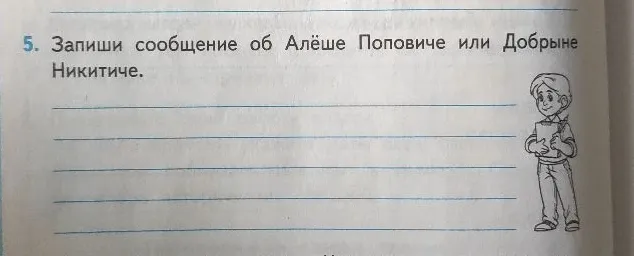 5. Запиши сообщение об Алёше Поповиче или Добрыне
Никитиче.